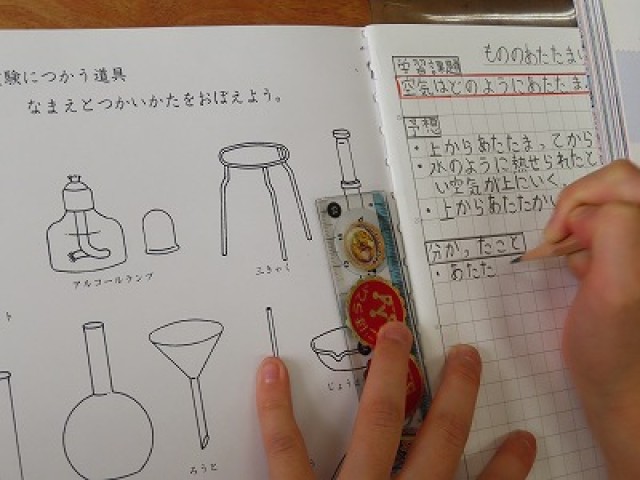 験につかう道具
なまえとつかいかたをおぼえよう。
アルコールランプ
三きゃく
ろうと
じょう
もののあたたま
学習課題
空気はどのようにあたたま
予想
・上からあたたまってから
・水のように熱せられたと
い空気が上にいく。
・上からあたたかい
分かったこと
・あたた